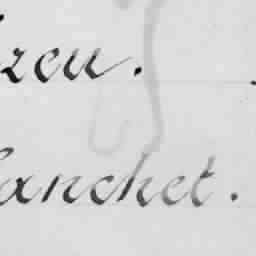 zeu.
lanchet.